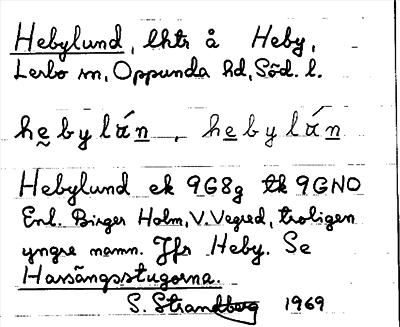 Hebylund, lhtr å Heby,
Lerbo sn, Oppunda hd, Söd. l.
hebylán, hebylán
Hebylund ek 9G8g tk 9GNO
Enl. Birger Holm, V. Vegred, troligen
yngre namn. Jfr Heby. Se
Harsängsstugorna.
S. Strandberg 1969